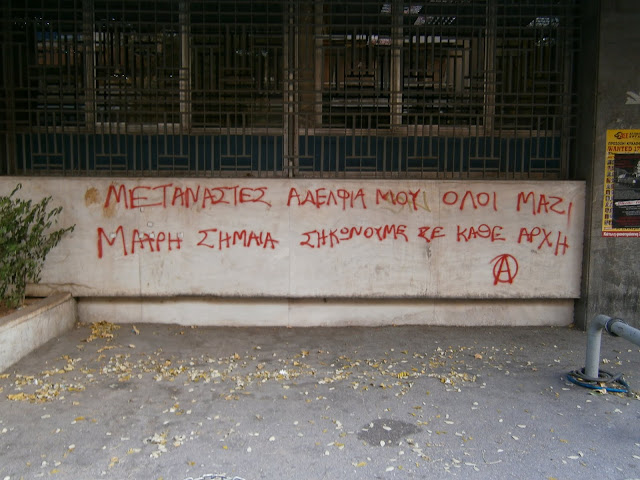 ΜΕΤΑΝΑΣΤΕΣ ΑΔΕΛΦΙΑ ΜΟΥ ΟΛΟΙ ΜΑΖΙ
ΜΑΥΡΗ ΣΗΜΑΙΑ ΣΗΚΩΝΟΥΜΕ ΣΕ ΚΑΘΕ ΑΡΧΗ
Α
WANTED